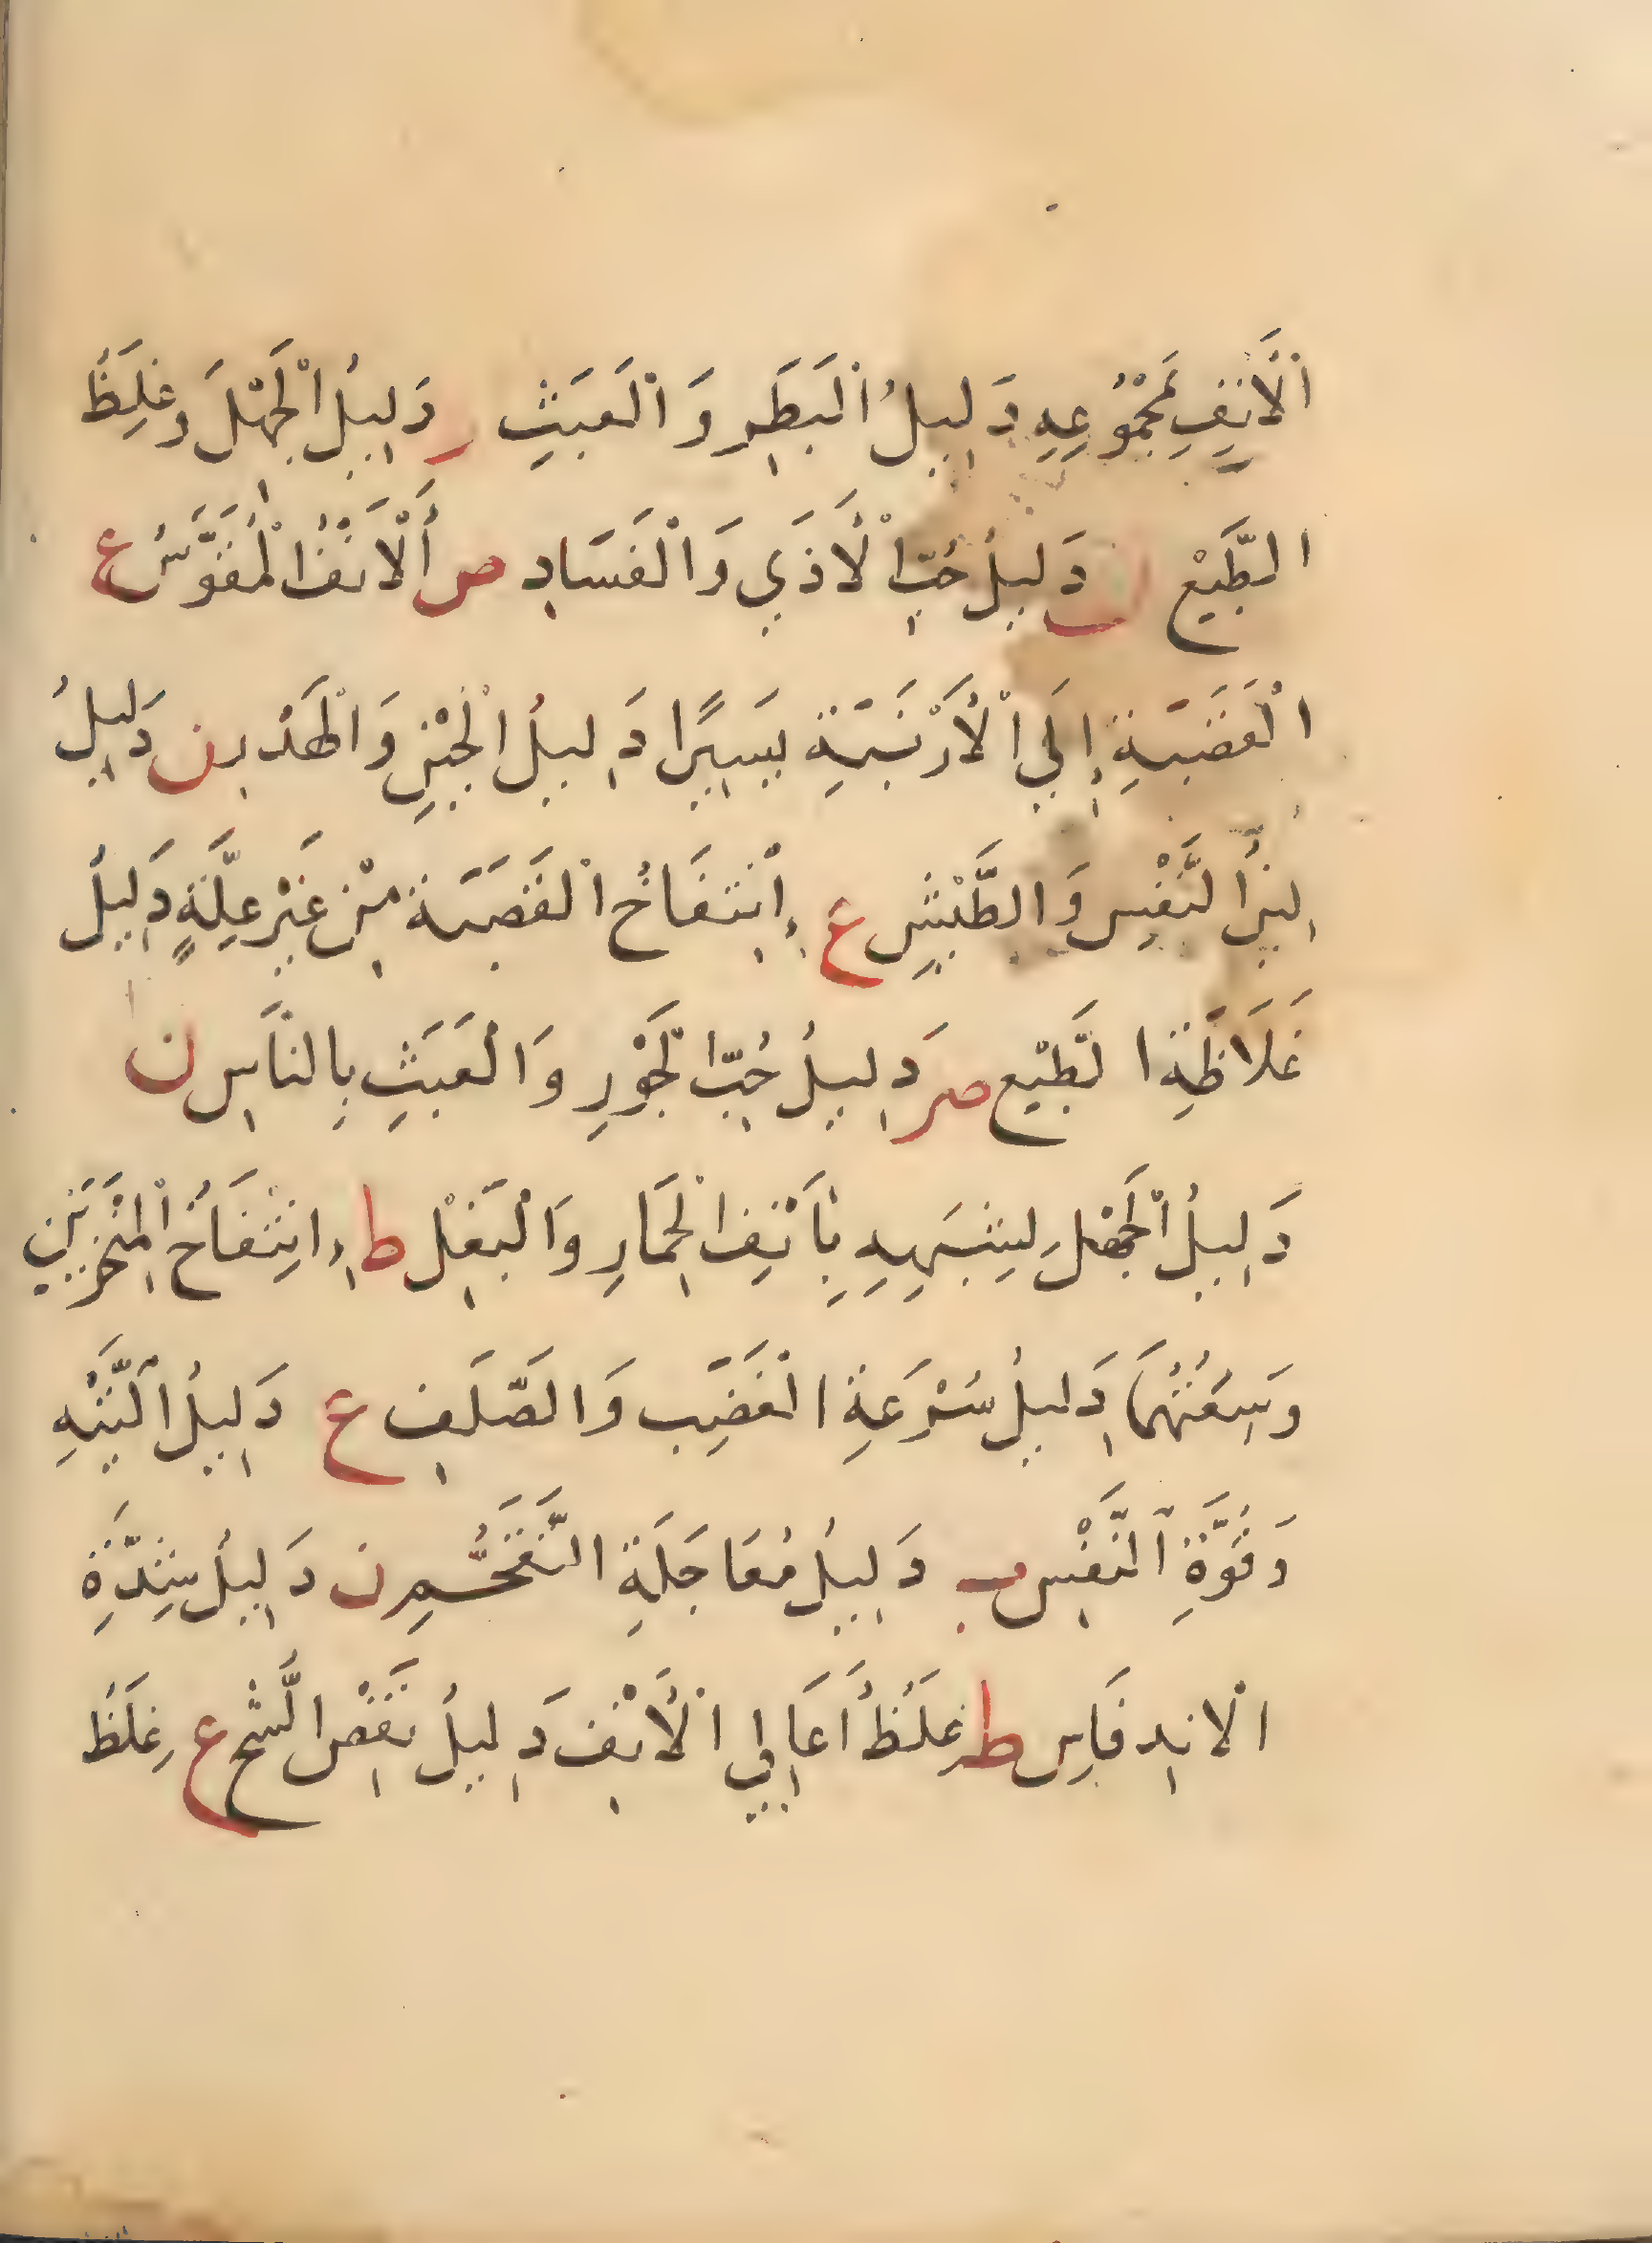 اَلْأَنِفِ مَجْمُوُعِهِ دَلِيلُ الْبَطَرِ وَالْعَبَثِ ر دَلِيلُ الْجَهْلَ وغِلَظُ
الطَّبْعِ ن دَلِيلُ حُبِّ الْأَذَي وَالْفَسَادِ ص أَلْأَنْفُ الْمُقَوَّسُ ع
الْقَصَبَةِ إِلَي الْأَرْنَبَةِ يَسِيرًا دَلِيلُ الْخُبْزِ وَالْهَذْرِ ن دَلِيلُ
النَّفْسِ وَالطَّيْشِ ع إِنْتِفَاخُ الْقَصَبَةِ مِنْ غَيْرِ عِلَّةٍ دَلِيلُ
غَلَاظَةِ الطَّبْعِ صر دَلِيلُ حُبِّ الْجَوْرِ وَالْعَبَثِ بِالنَّاسِ ن
دَلِيلُ الْجَهْلِ لِشَبَهِهِ بِأَنْفِ الْحِمَارِ وَالْبَغْلِ ط إِنْتِفَاخُ الْمِنْخَرَيْنِ
وَسِعَتُهُمَا دَلِيلُ سُرْعَةِ الْغَضَبِ وَالصَّلَفِ ع دَلِيلُ التِّيْهِ
وَقُوَّةِ النَّفْسِ ب دَلِيلُ مُعَاجَلَةِ التَّقَحُّمِ ن دَلِيلُ شِدَّةِ
الْانِدفَاسِ ط غِلَظُ أَعَالِي الْأَنْفِ دَلِيلُ نَقْصِ الشُّحِ ع غِلَظُ